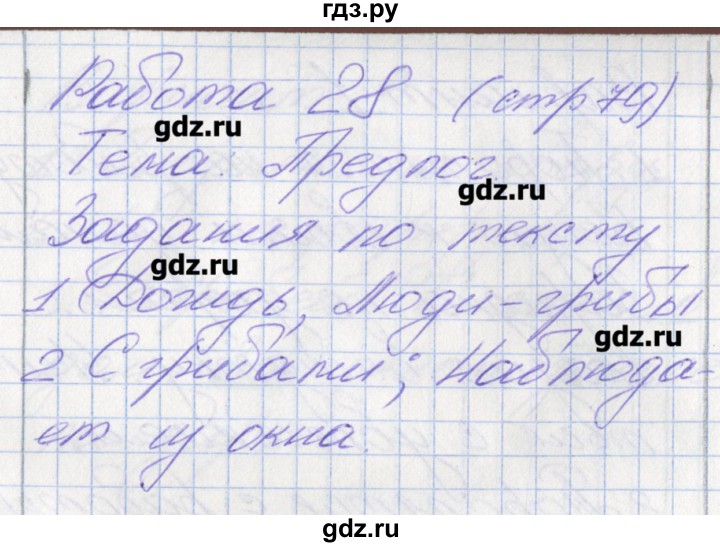 гдз.ру
Работа 28 (стр 79)
gdz.ru
Тема: Предлог.
gdz.ru
Задания по тексту
gdz.ru
1 Дождь, Люди-грибы
gdz.ru
2 С грибами; Наблюда-
ет из окна.
gdz.ru